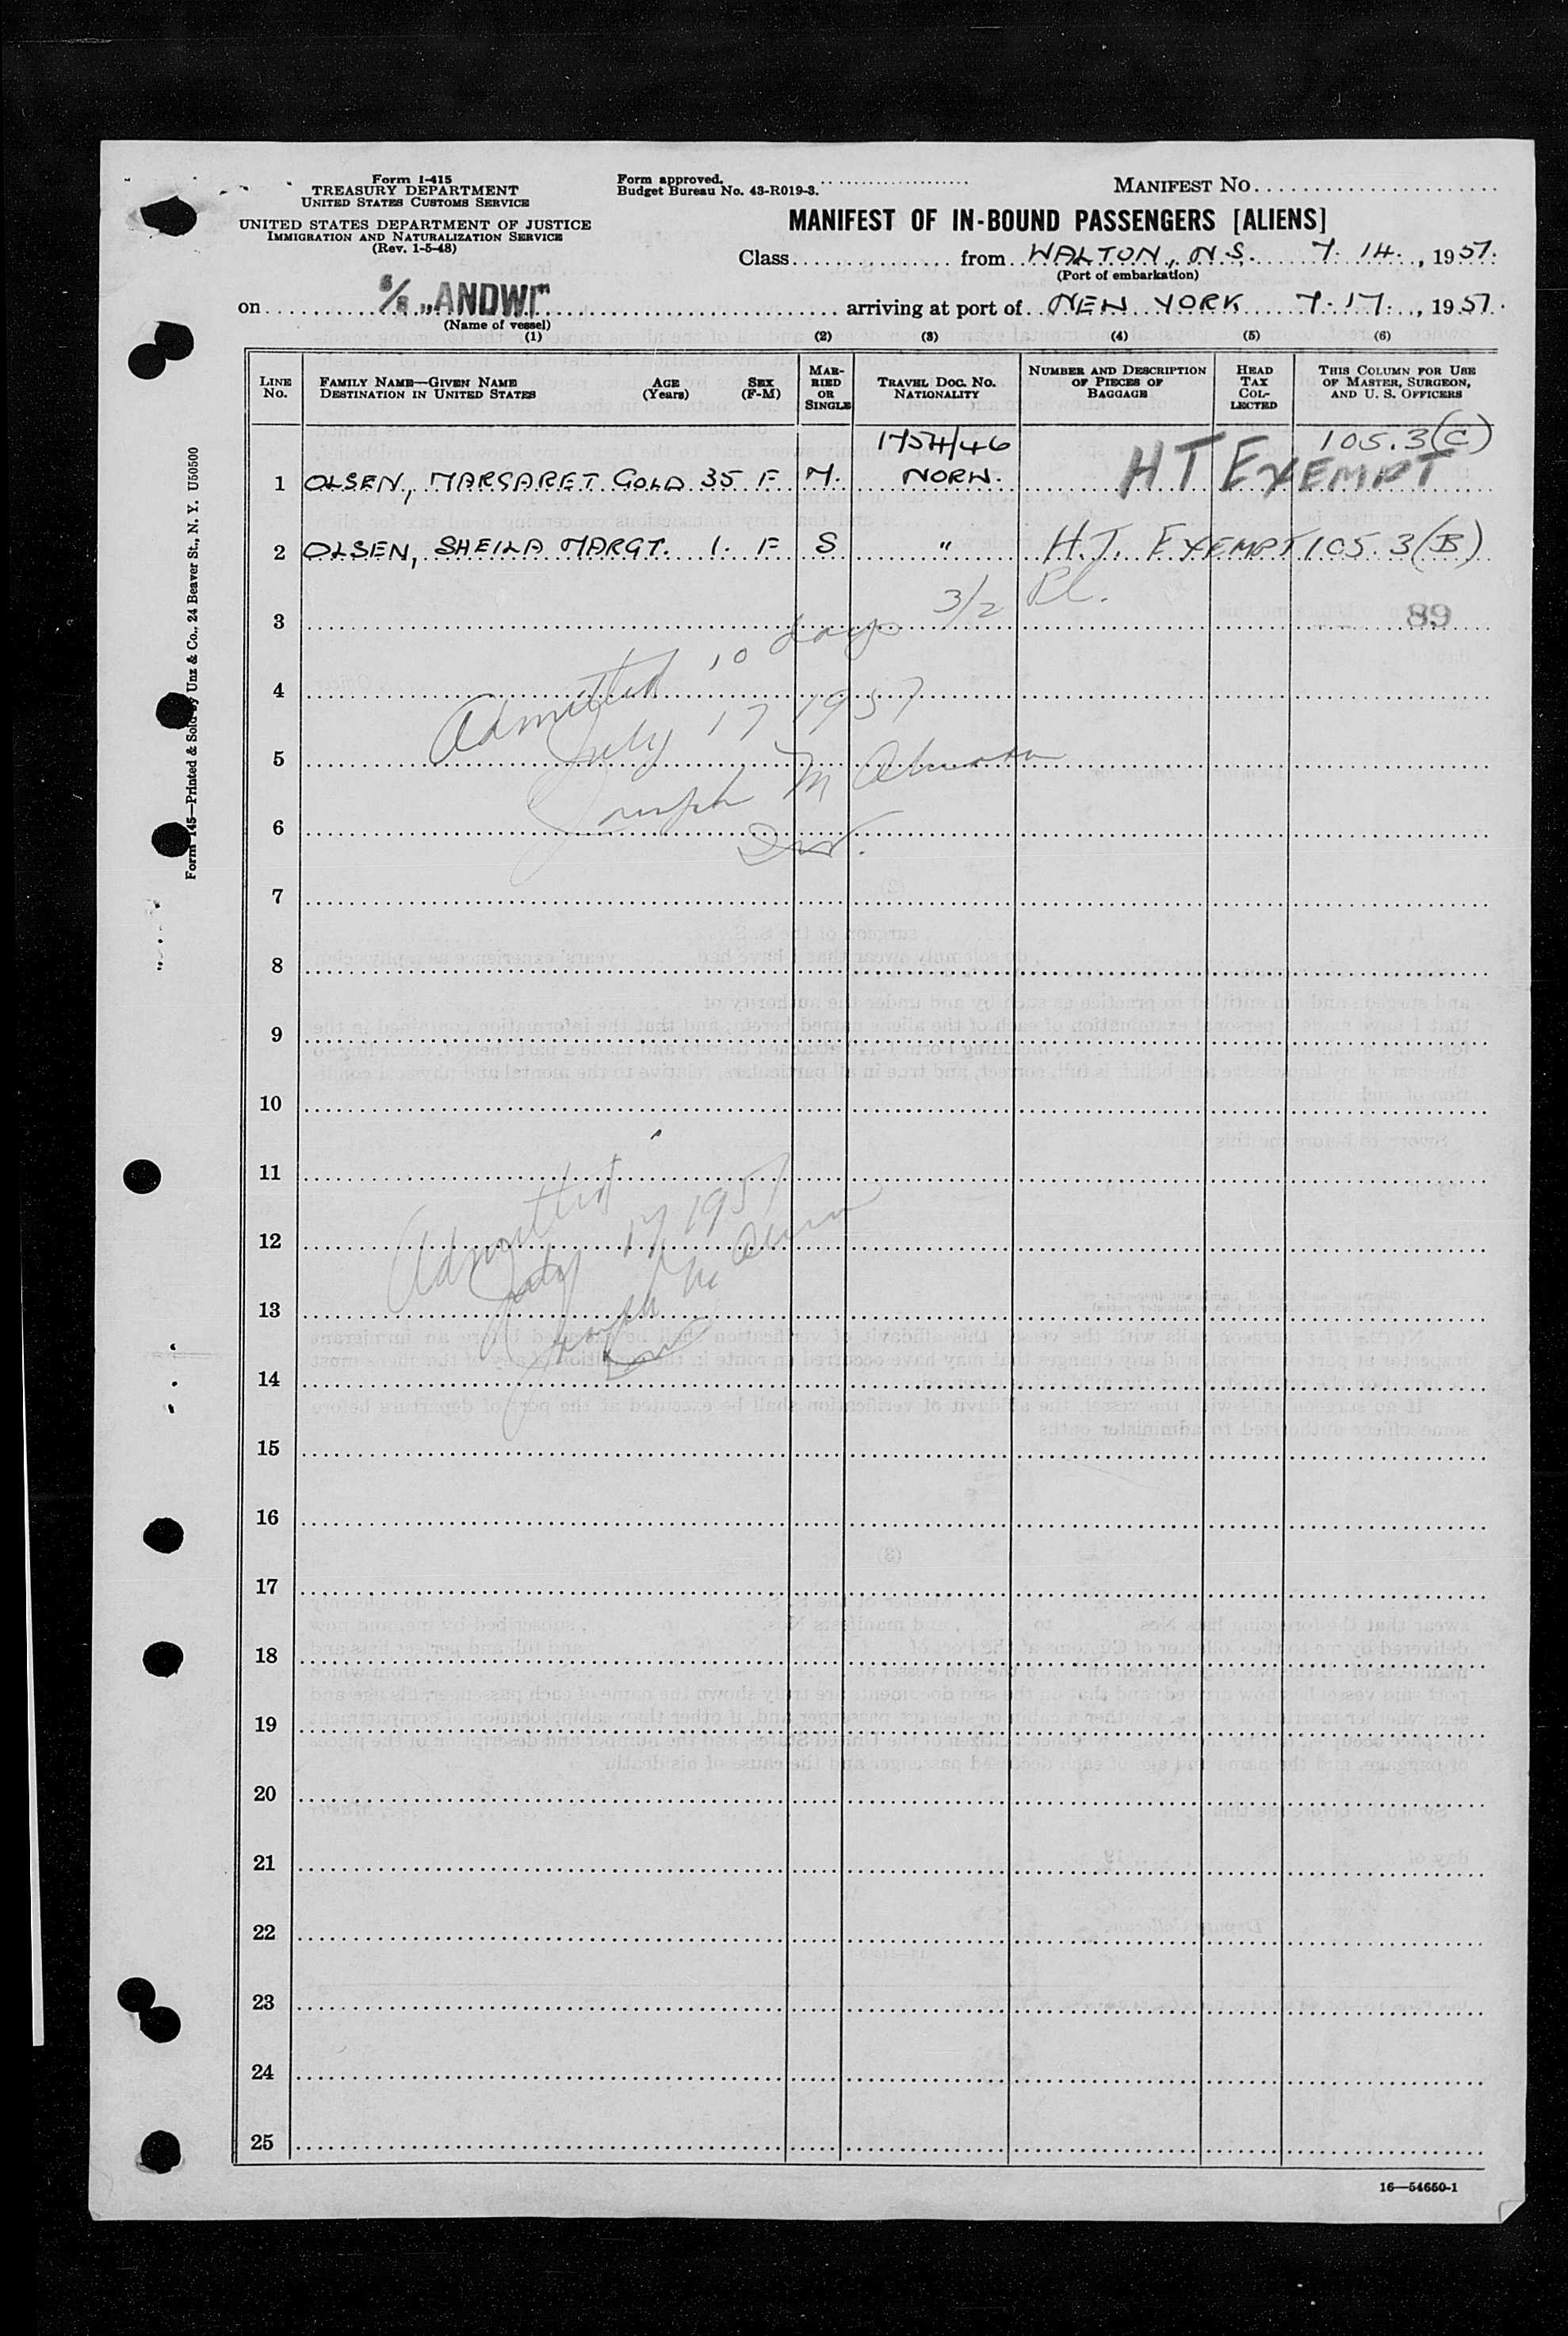 Form I-415
TREASURY DEPARTMENT
UNITED STATES CUSTOMS SERVICE
UNITED STATES DEPARTMENT OF JUSTICE
IMMIGRATION AND NATURALIZATION SERVICE
(Rev. 1-5-48)
Form approved.
Budget Bureau No. 43-R019-3.
MANIFEST No.
MANIFEST OF IN-BOUND PASSENGERS [ALIENS]
Class from WALTON, N.S. 7. 14. , 1951.
(Port of embarkation)
on S/S „ANDWI" arriving at port of NEW YORK 7. 17. , 1951.
(Name of vessel)
(1) (2) (3) (4) (5) (6)
LINE No. FAMILY NAME—GIVEN NAME DESTINATION IN UNITED STATES AGE (Years) SEX (F-M) MARRIED OR SINGLE TRAVEL DOC. NO. NATIONALITY NUMBER AND DESCRIPTION OF PIECES OF BAGGAGE HEAD TAX COLLECTED THIS COLUMN FOR USE OF MASTER, SURGEON, AND U. S. OFFICERS
1754/46 105.3(C)
1 OLSEN, MARGARET GOLD 35 F M. NORW. HT EXEMPT
2 OLSEN, SHEILA MARGT. 1. F S " H.T. EXEMPT 105.3(B)
3/2 Pl.
3 89
Admitted 10 days
4
July 17 1951
5
Joseph M
6
7
8
9
10
11
Admitted
12
July 17 1951
13
Joseph M
14
15
16
17
18
19
20
21
22
23
24
25
16—54650-1
Form 145—Printed & Sold by Unz & Co., 24 Beaver St., N. Y. U50500